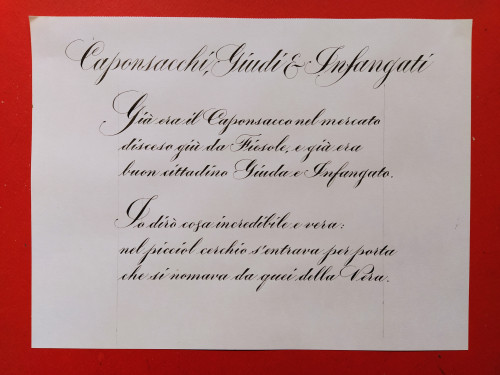 Caponsacchi, Giudi & Infangati
Già era il Caponsacco nel mercato
disceso giù da Fiesole, e già era
buon cittadino Giuda e Infangato.
Io dirò cosa incredibile e vera:
nel picciol cerchio s'entrava per porta
che si nomava da quei della Pera.